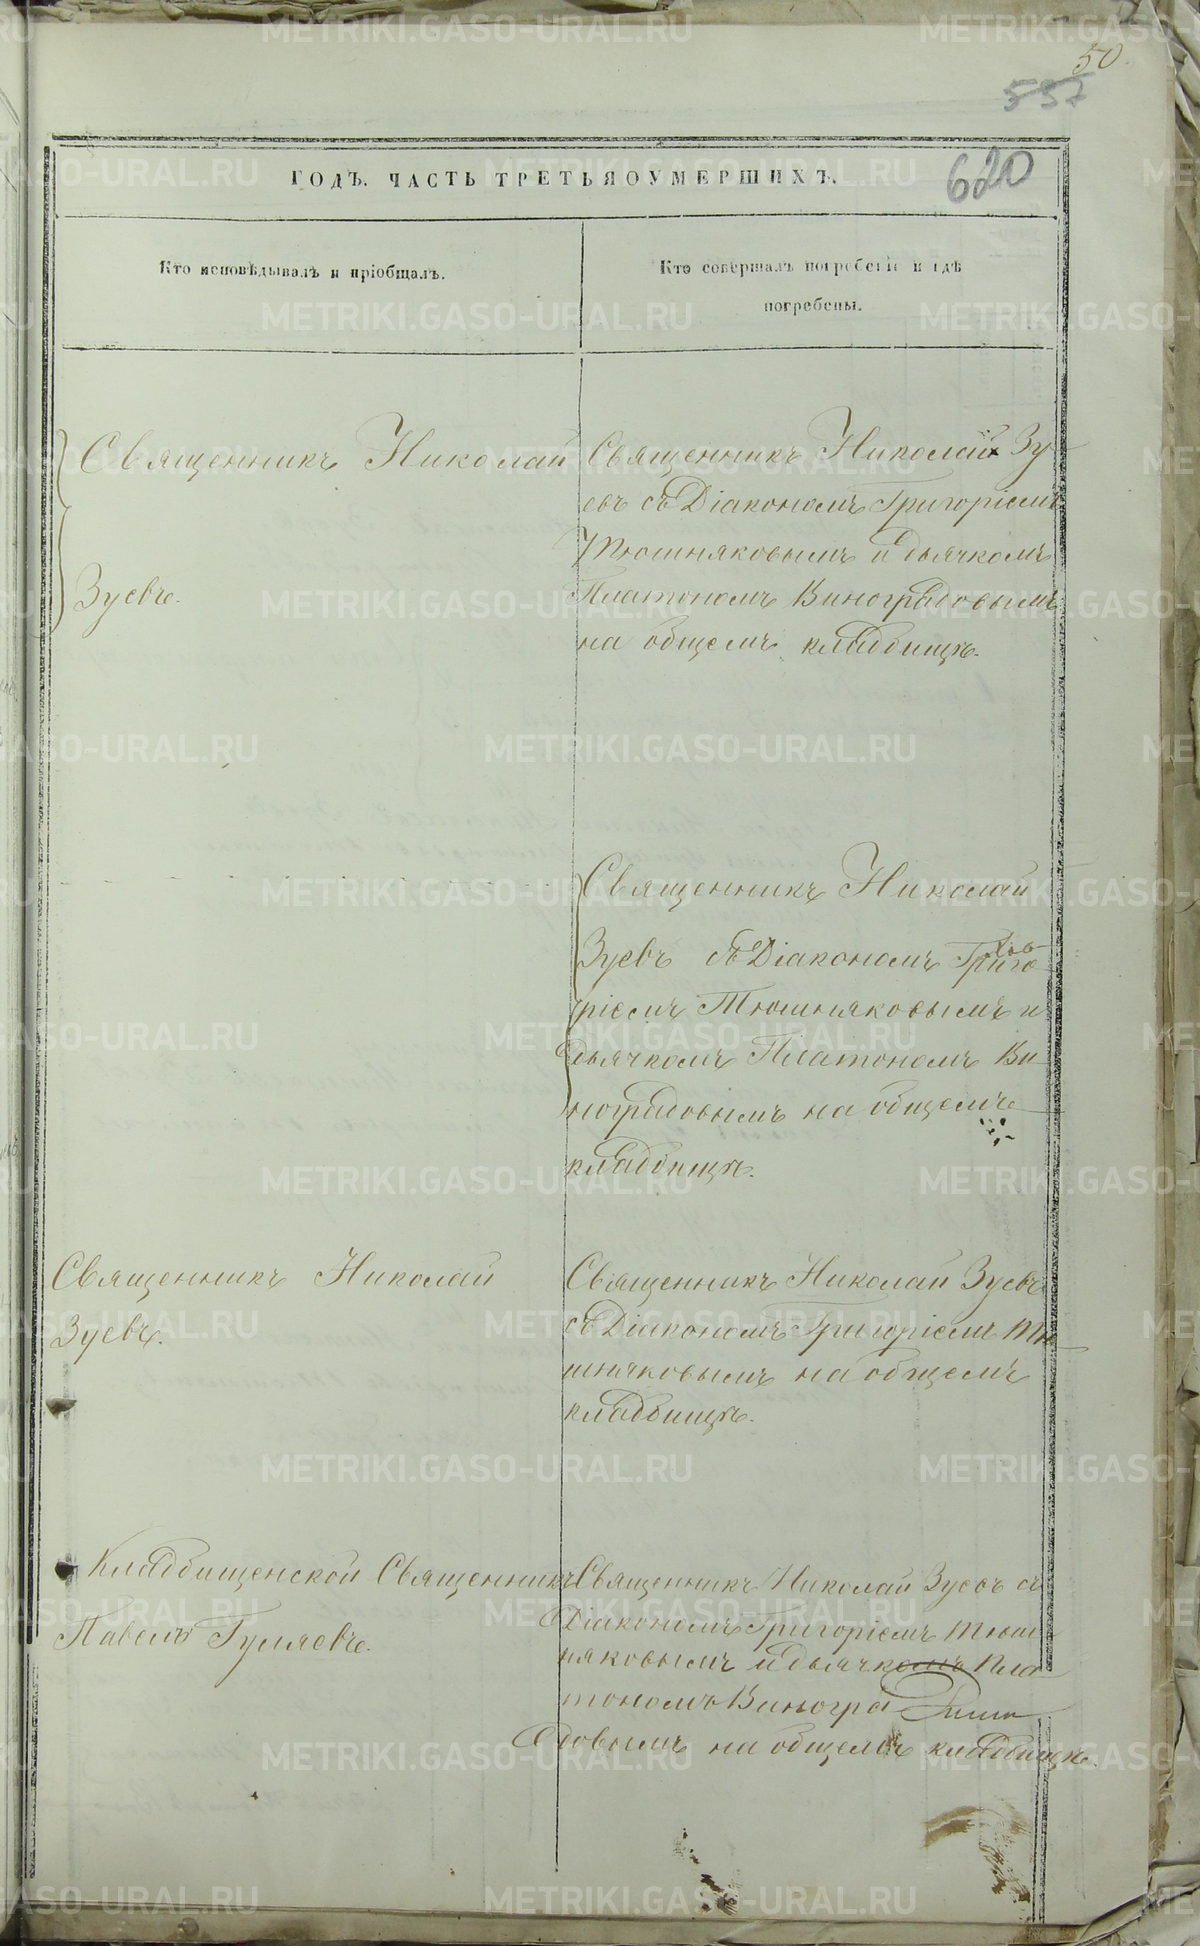 50.
557
620
ГОДЪ. ЧАСТЬ ТРЕТЬЯ О УМЕРШИХЪ.
Кто исповѣдывалъ и пріобщалъ.
Кто совершалъ погребеніе и гдѣ
погребены.
Священникъ Николай
Зуевъ.
Священникъ Николай Зу-
евъ съ Діакономъ Григоріемъ
Тюшняковымъ и дьячкомъ
Платономъ Виноградовымъ
на общемъ кладбищѣ.
Священникъ Николай
Зуевъ съ Діакономъ Григо
ріемъ Тюшняковымъ и
дьячкомъ Платономъ Ви
ноградовымъ на общемъ
кладбищѣ.
Священникъ Николай
Зуевъ.
Священникъ Николай Зуевъ
съ Діакономъ Григоріемъ Тю
шняковымъ на общемъ
кладбищѣ.
Кладбищенской Священникъ
Павелъ Гуляевъ.
Священникъ Николай Зуевъ съ
Діакономъ Григоріемъ Тюш
няковымъ и дьячкомъ Пла
тономъ Виногра
довымъ на общемъ кладбищѣ.
METRIKI.GASO-URAL.RU